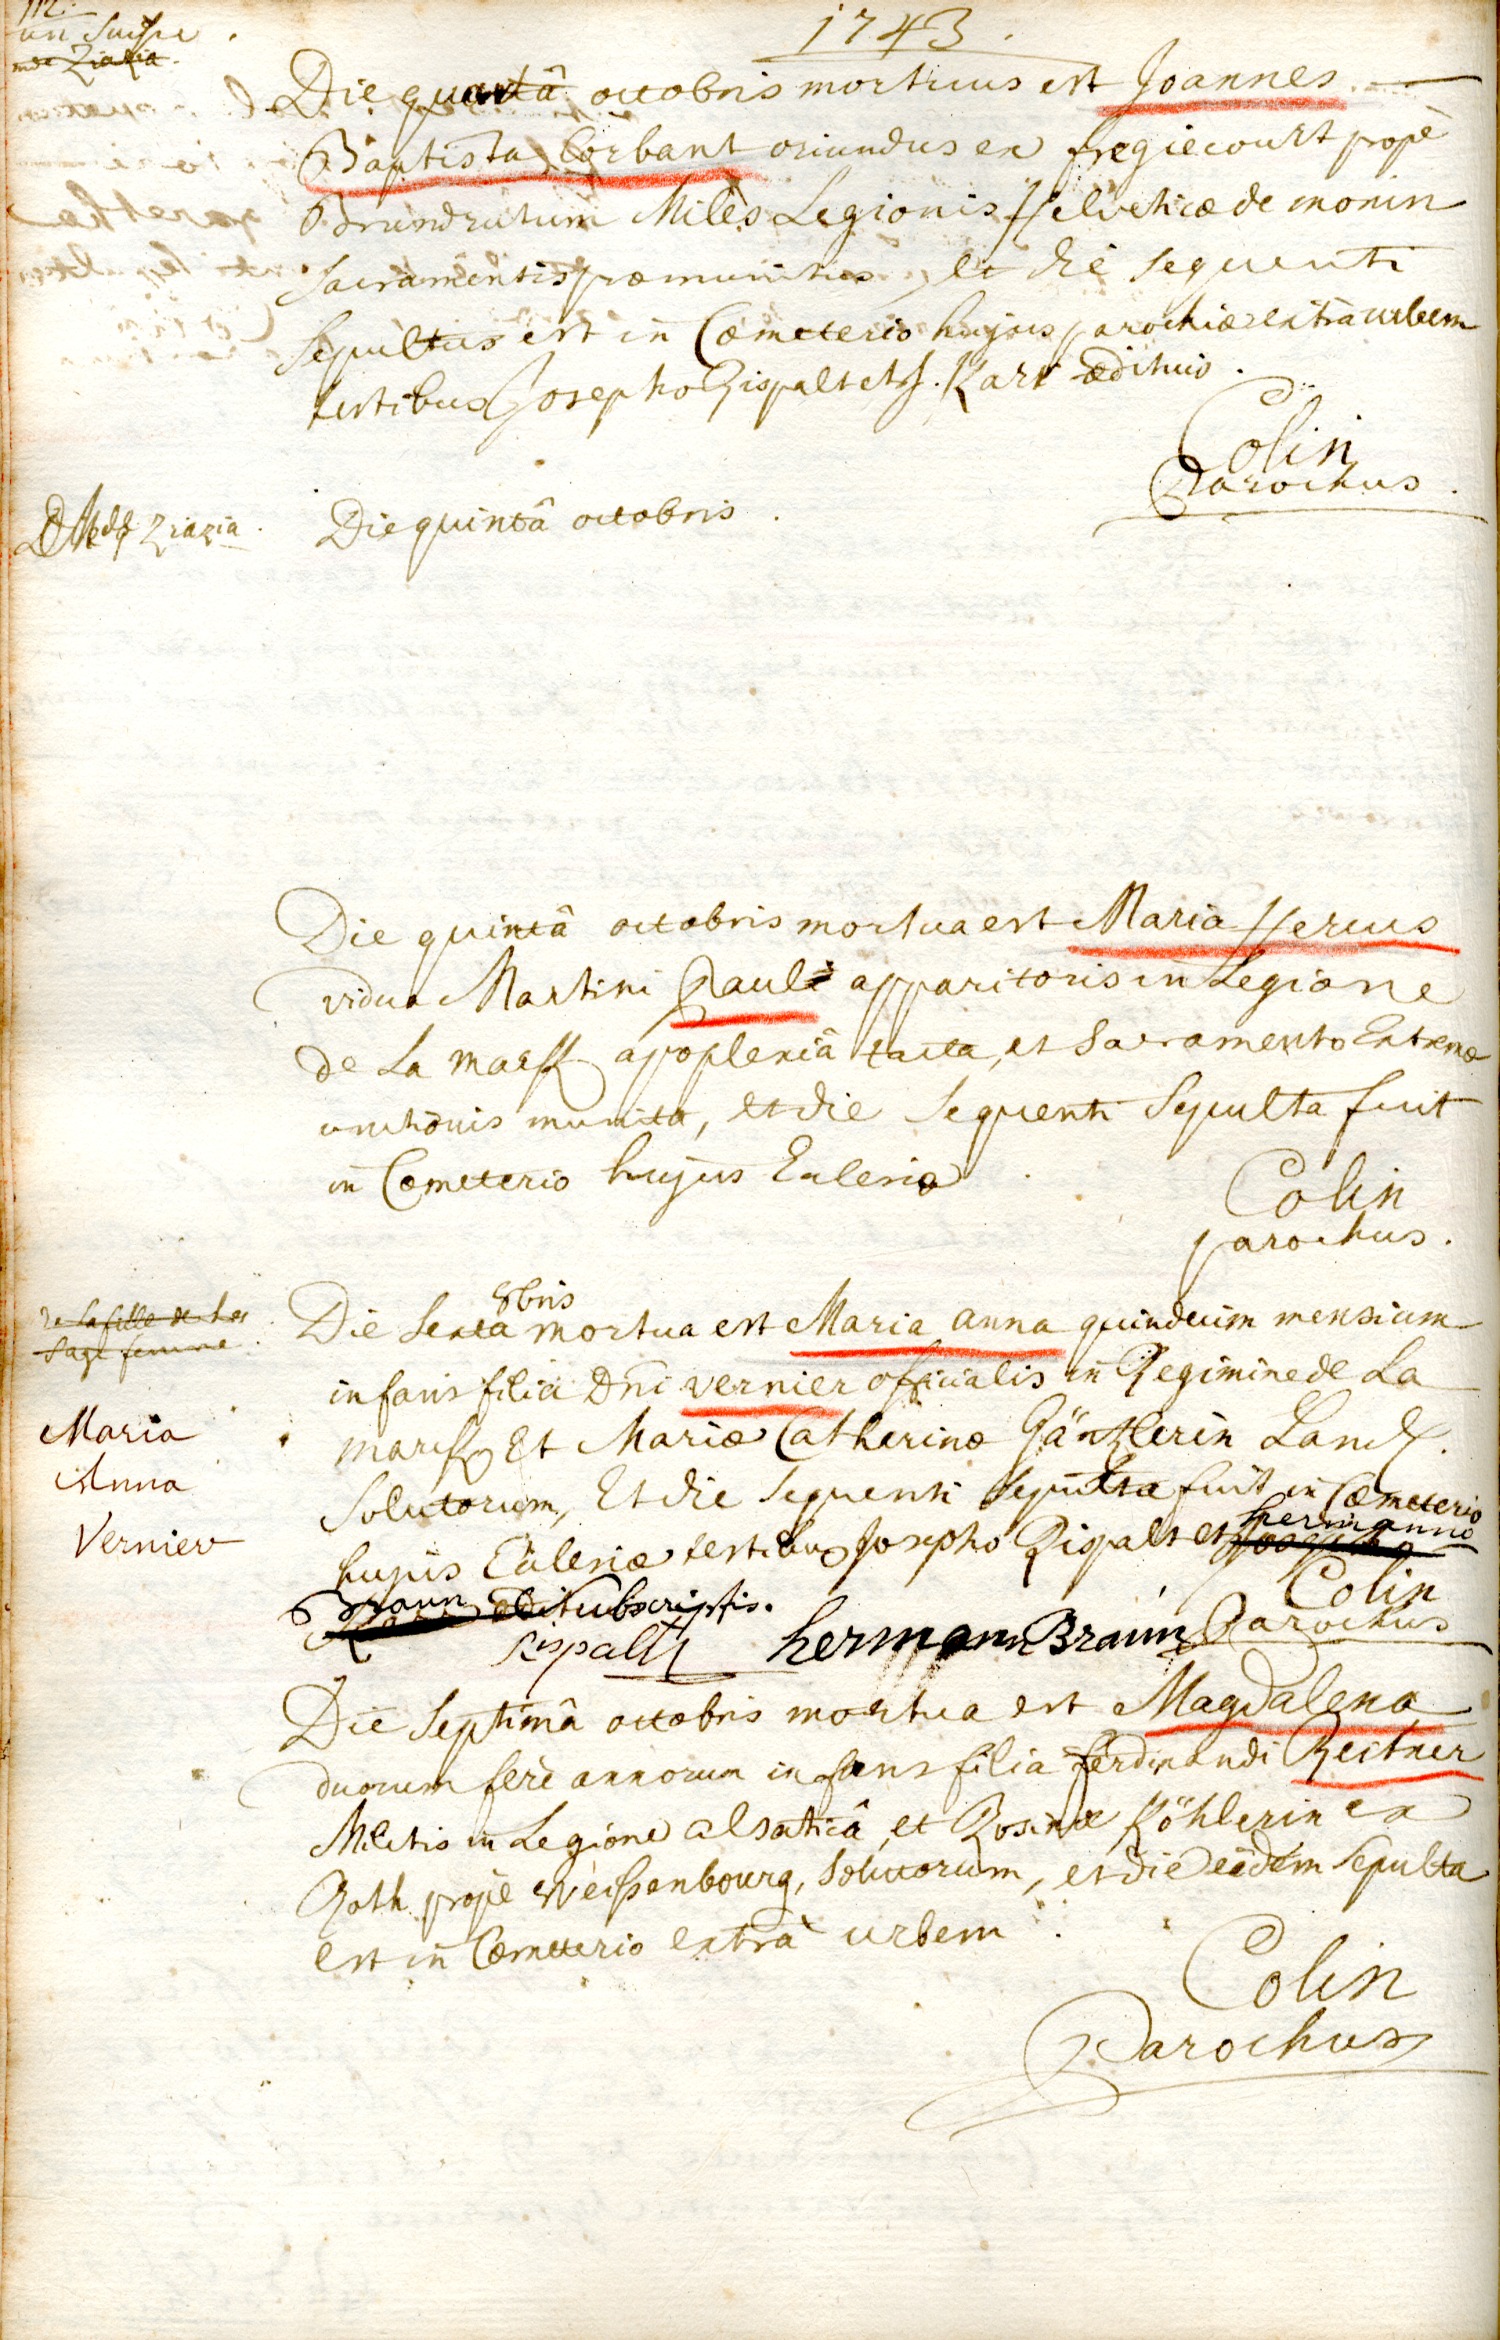 112.
1743.
un Suisse.
Die quartâ octobris mortuus est Joannes
Baptista Corbant oriundus ex fregiecourt propè
Brundrutum Miles Legionis Helveticæ de monin
Sacramentis præmunitus, et die sequenti
sepultus est in Cœmeterio hujus parochiæ extrà urbem
testibus Josepho Rispalt et J. Karr ædituis.
Colin
Parochus.
Ziazia.
Die quintâ octobris.
Die quintâ octobris mortua est Maria Herius
vidua Martini Pauli apparitoris in Legione
de La marck apoplexiâ tacta, et Sacramento Extremæ
unctionis munita, et die sequenti Sepulta fuit
in Cœmeterio hujus Ecclesiæ.
Colin
parochus.
de la fille de la
Sage femme.
8bris
Die Sexta mortua est Maria anna quindecim mensium
infans filia Dni vernier officialis in Regimine de La
marck Et Mariæ Catherinæ Gäntzlerin
Solutorum, Et die sequenti sepulta fuit in Cœmeterio
Maria
Anna
Vernier
hujus Ecclesiæ testibus Josepho Rispalt et hermanno
Braun subscriptis.
Colin
Parochus
Rispalt hermann Braun
Die Septimâ octobris mortua est Magdalena
duorum ferè annorum infans filia ferdinandi Zeitner
Militis in Legione alsaticâ, et Rosinæ Köhlerin ex
Roth propè Weissenbourg, Solutorum, et die eâdem Sepulta
est in Cœmeterio extrà urbem.
Colin
Parochus